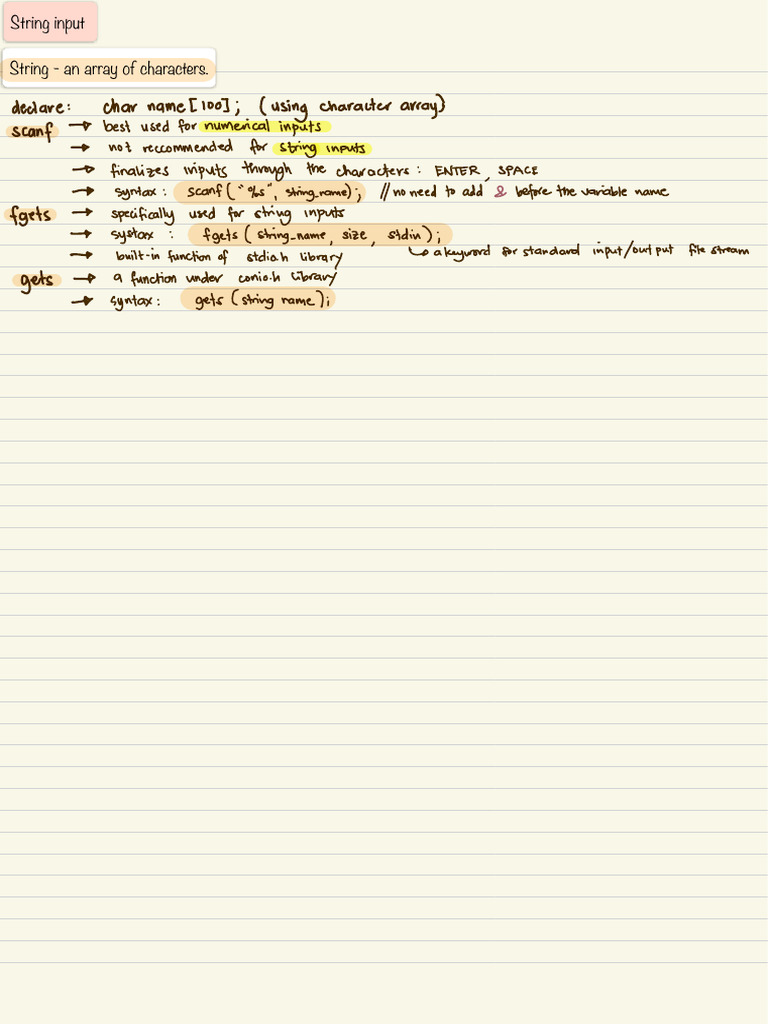 String input
String - an array of characters.
declare: char name[100]; (using character array)
scanf → best used for numerical inputs
→ not reccommended for string inputs
→ finalizes inputs through the characters: ENTER, SPACE
→ syntax: scanf("%s", string_name); //no need to add & before the variable name
fgets → specifically used for string inputs
→ systax : fgets (string_name, size, stdin);
→ built-in function of stdio.h library ↳ a keyword for standard input/output file stream
gets → a function under conio.h library
→ syntax: gets (string name);